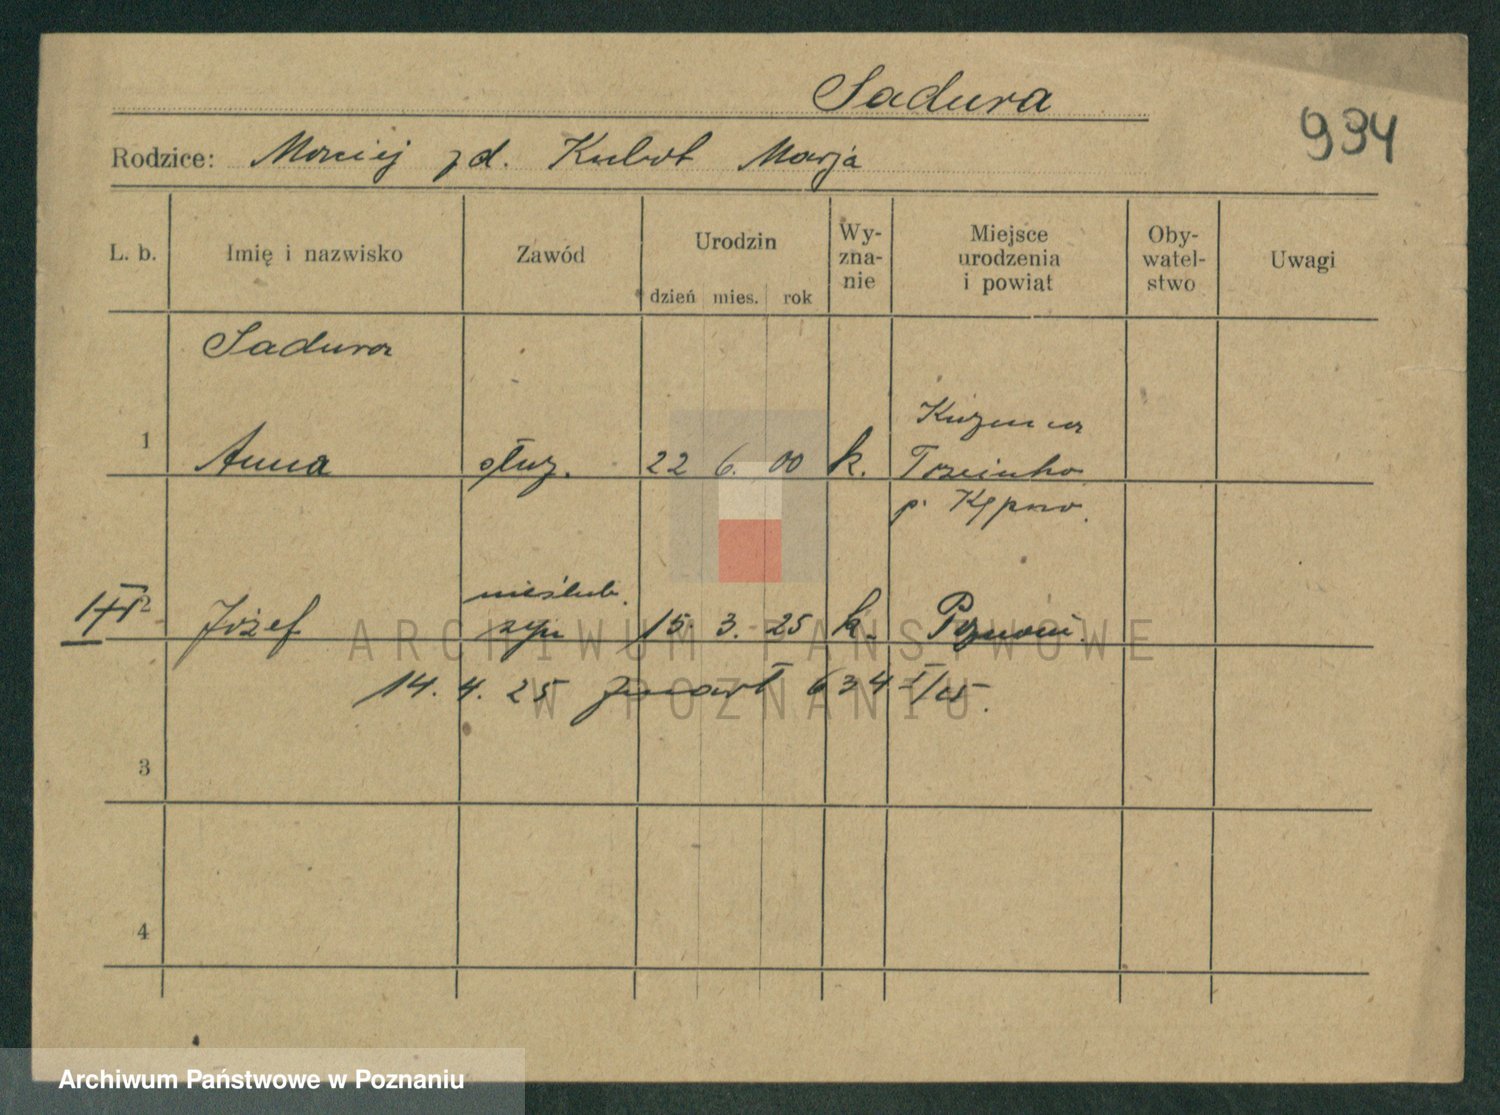 Sadura
934
Rodzice: Maciej zd. Kubot Marja
L. b. Imię i nazwisko Zawód Urodzin dzień mies. rok Wy-zna-nie Miejsce urodzenia i powiat Oby-watel-stwo Uwagi
Sadura
1 Anna służ. 22 6. 00 k. Kuźnica
Trzcińska
p. Kępno.
nieślub.
2 Józef syn 15. 3. 25 k. Poznań.
14. 4. 25 zmarł 634 I/25.
3
4
ARCHIWUM PAŃSTWOWE
W POZNANIU
Archiwum Państwowe w Poznaniu